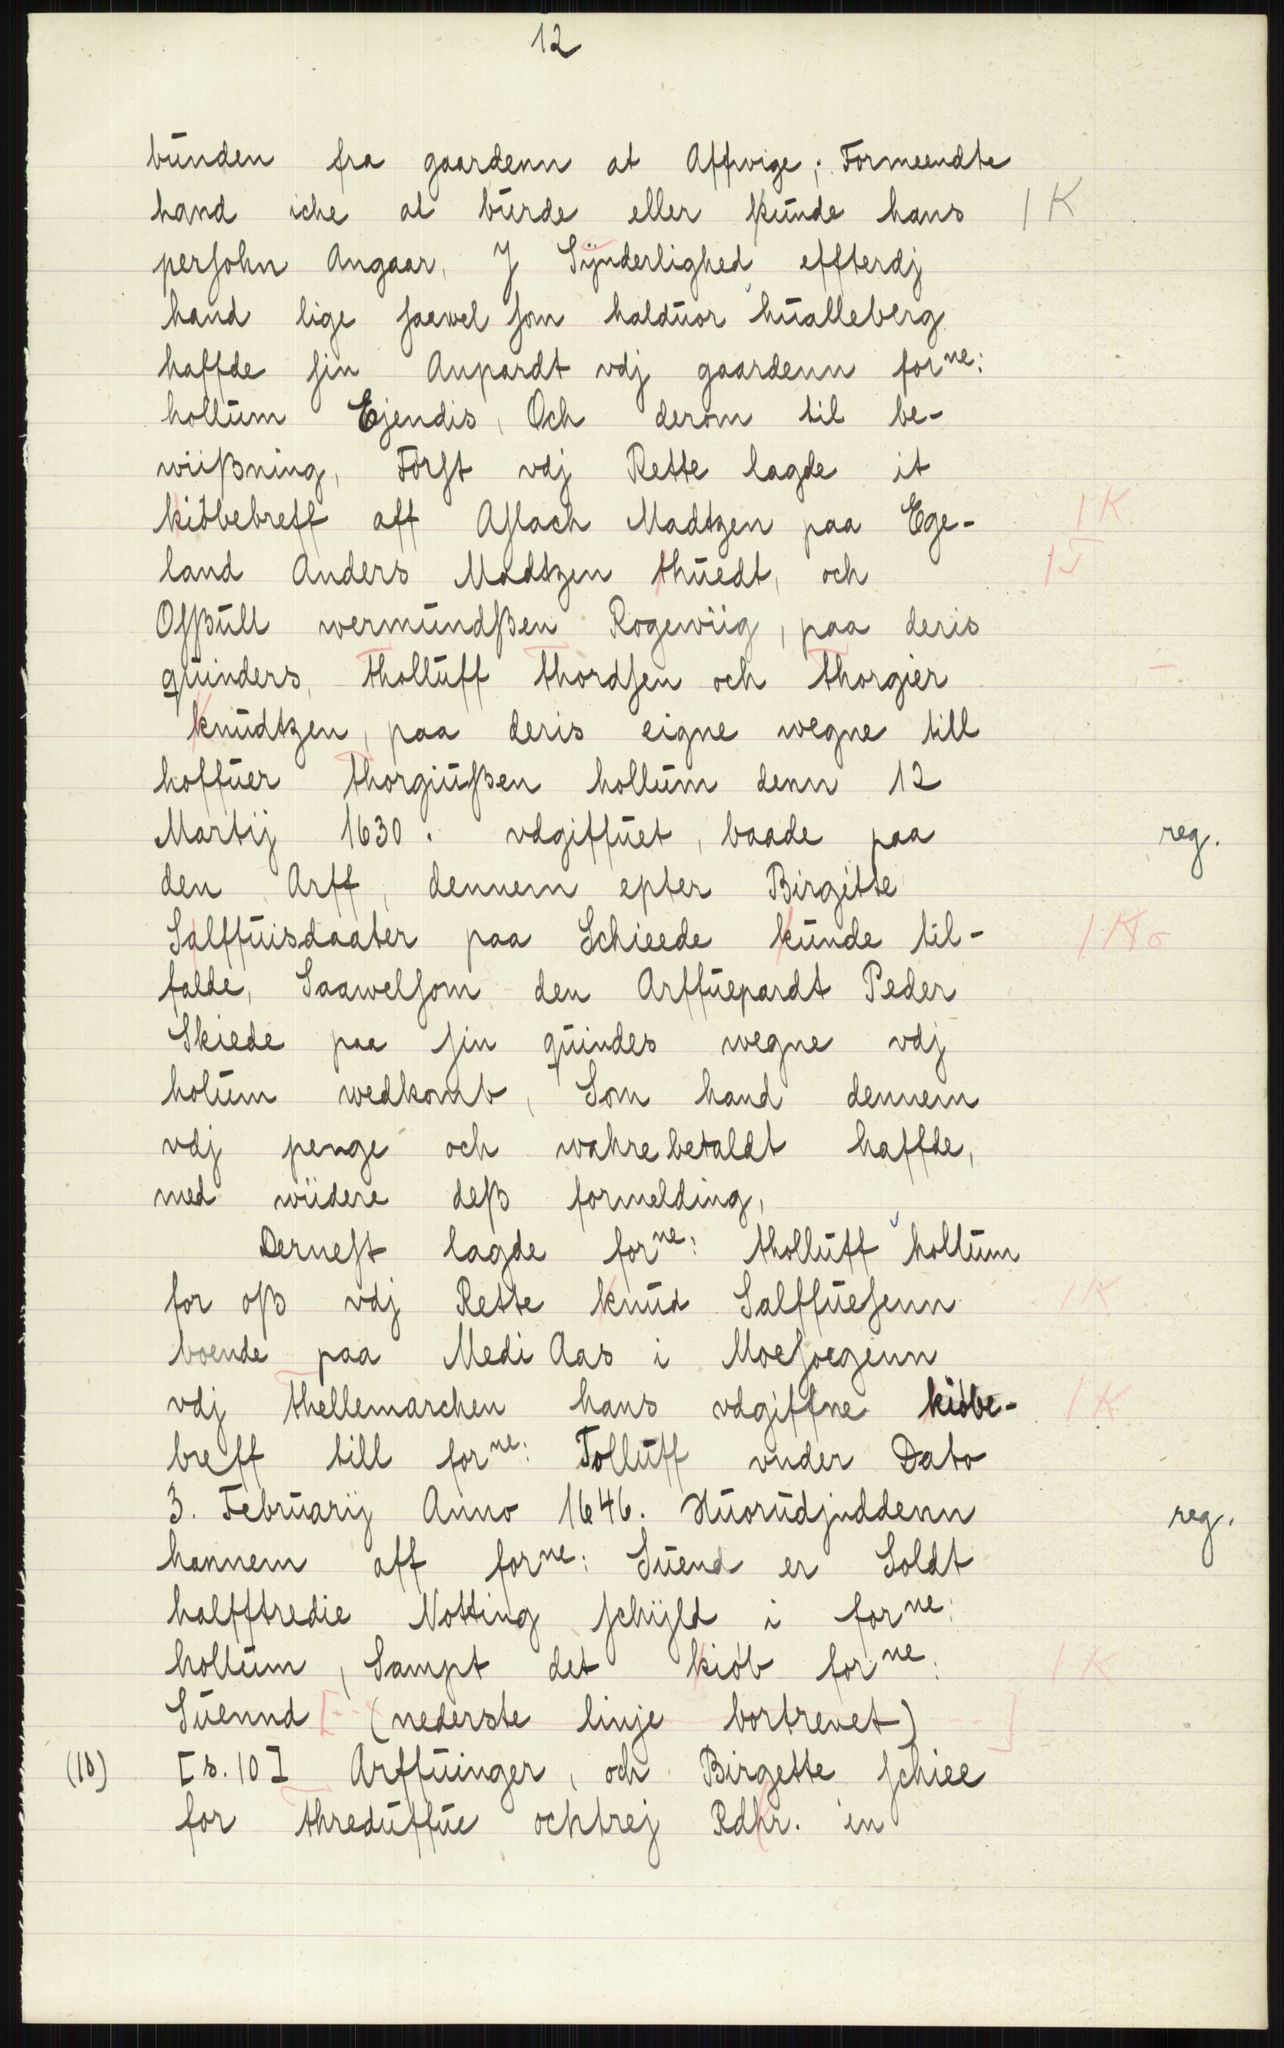 12
bunden fra gaardenn at Affwige; Formeendte
hand iche at burde eller kunde hans
persohn Angaar, J Sÿnderlighed effterdj
hand lige saawel som halduor hualleberg
haffde sin Anpardt vdj gaardenn forne:
hollum Ejendis, Och derom til be-
wiißning, Först vdj Rette lagde it
kiöbebreff aff Aslach Madtzen paa Ege-
land Anders Madtzen thuedt, och
Offßull wermundßen Rogewiig, paa deris
quinders, tholluff thordsen och thorgier
knudtzen, paa deris eigne wegne till
hoffuer thorgiußen hollum denn 12
Martij 1630. vdgiffuet, baade paa
den Arff, dennem epter Birgitte
Salffuisdaater paa Schieede kunde til-
falde, Saawelsom den Arffuepardt Peder
Skiede paa sin quindes wegne vdj
holum wedkomb, Som hand dennem
vdj penge och wahre betaldt haffde,
med wiidere deß formelding,
Dernest lagde forne: tholluff hollum
for oß vdj Rette knud Salffuesenn
boende paa Medi Aas i Moesoegenn
vdj thellemarchen hans vdgiffne kiöbe-
breff till forne: Tolluff vnder Dato
3. Februarij Anno 1646. Huorudjnddenn
hannem aff forne: Suend er Soldt
halfftredie Notting schÿld i forne:
hollum, Sampt det kiöb forne:
Suennd [-- (nederste linje bortrevet) --]
(10) [s. 10] Arffuinger, och Birgette schiee
for threduffue ochtrej Rdhr. in
1 K
1 K
1 T
reg.
1 K
1 K
reg.
1 K